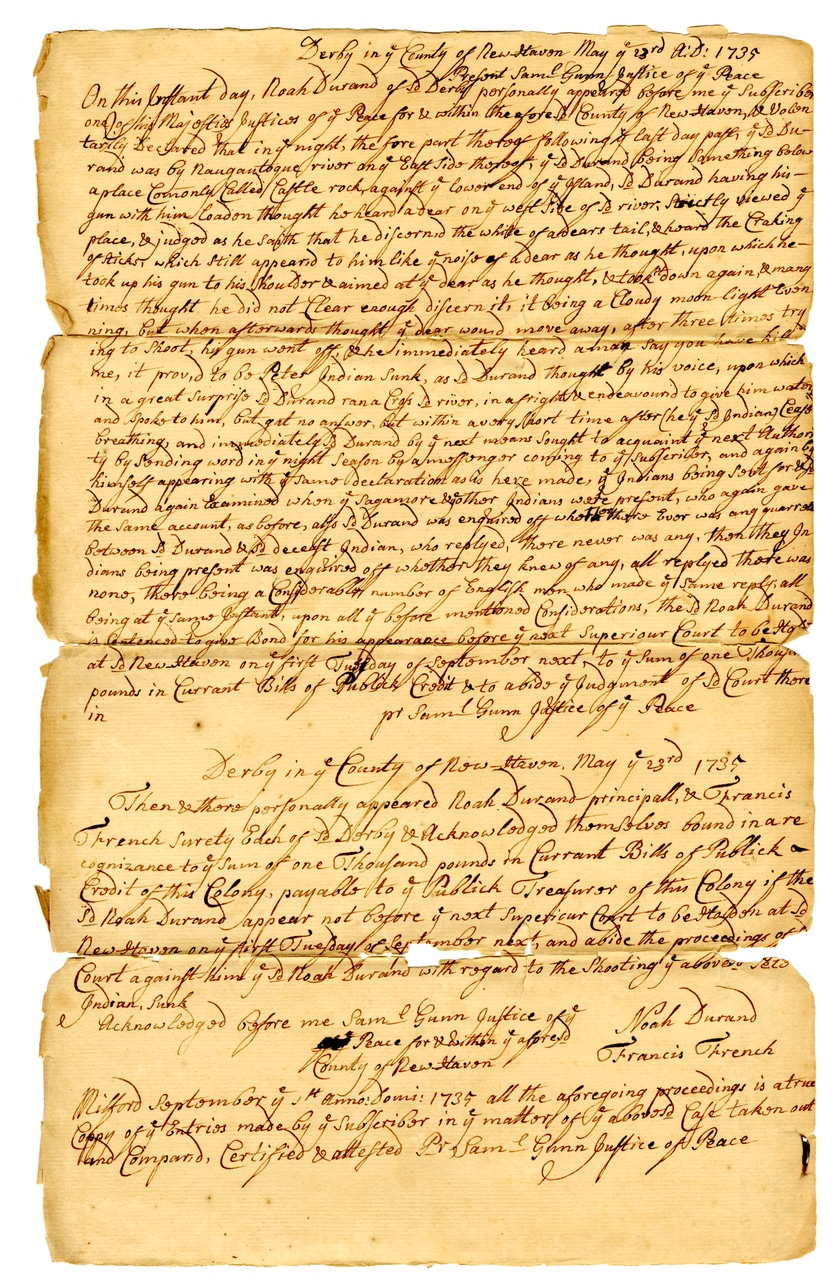 Derby in ye County of New-Haven May ye 23rd A:D: 1735
Present Saml Gunn Justice of ye Peace
On this Instant day, Noah Durand of sd Derby personally appeared before me ye Subscriber
one of his Majesties Justices of ye Peace for & within the aforesd County of New-Haven, & Volen
tarily Declared that in ye night, the fore part thereof following ye last day past, ye sd Du-
rand was by Naugautogue river on ye East Side thereof, ye sd Durand being Something below
a place Comonly Called Castle rock, against ye lower end of ye Island, sd Durand having his
gun with him loaden thought he heard a dear on ye west Side of sd river, Strictly viewed ye
place, & judged as he saith that he discerned the white of a dears tail, & heard the Craking
of sticks, which still appeared to him like ye noise of a dear as he thought, upon which he
took up his gun to his shoulder & aimed at ye dear as he thought, & took down again, & many
times thought he did not Clear enough discern it, it being a Cloudy moon-light Even
ning, but when afterwards thought ye dear wound move away, after three times try
ing to Shoot, his gun went off, & he immediately heard a man say you have kill
me, it prov,d to be Peter Indian Sunk, as sd Durand thought by his voice, upon which
in a great Surprise sd Durand ran a Cross sd river, in a fright & endeavound to give him water
and Spoke to him, but gat no answer, but within a very Short time after (he ye sd Indian) Ceast
breathing, and immediately sd Durand by ye next means sought to acquaint ye next Authori
ty by Sending word in ye night Season by a messenger coming to ye Subscriber, and again by
himself appearing with ye Same declaration as is here made, ye Indians being Sent for & sd
Durand again Examined when ye Sagamore & other Indians were present, who again gave
the Same account, as before, also sd Durand was enquired off whether there Ever was any quarrel
between sd Durand & sd deceast Indian, who replyed, there never was any, then they In
dians being present was enquired off whether they knew of any, all replyed there was
none, there being a Considerable number of English men who made ye Same reply, all
being at ye Same Instant, upon all ye before mentioned Considerations, the sd Noah Durand
is Sentenced to give Bond for his appearance before ye next Superiour Court to be
at sd New-Haven on ye first Tuesday of September next, to ye Sum of one Thousand
pounds in Currant Bills of Publick Credit & to abide ye Judgment of sd Court there
in pr Saml Gunn Justice of ye Peace
Derby in ye County of New-Haven, May ye 23rd 1735
Then & there personally appeared Noah Durand principall, & Francis
French Surety Each of sd Derby & Acknowledged themselves bound in a re
cognizance to ye Sum of one Thousand pounds in Currant Bills of Publick
Credit of this Colony, payable to ye Publick Treasurer of this Colony if the
sd Noah Durand appear not before ye next Superiour Court to be Holden at sd
New-Haven on ye first Tuesday of September next, and abide the proceedings of
Court against him ye sd Noah Durand with regard to the Shooting ye above
Indian, Sunk
Acknowledged before me Saml Gunn Justice of ye
Peace for & within ye aforesd
County of New Haven
Noah Durand
Francis French
Milford September ye 1st Anno: Domi: 1735 all the aforegoing proceedings is a true
Coppy of ye Entries made by ye Subscriber in ye matters of ye abovesd Case taken out
and Compard, Certified & attested Pr, Saml Gunn Justice of Peace